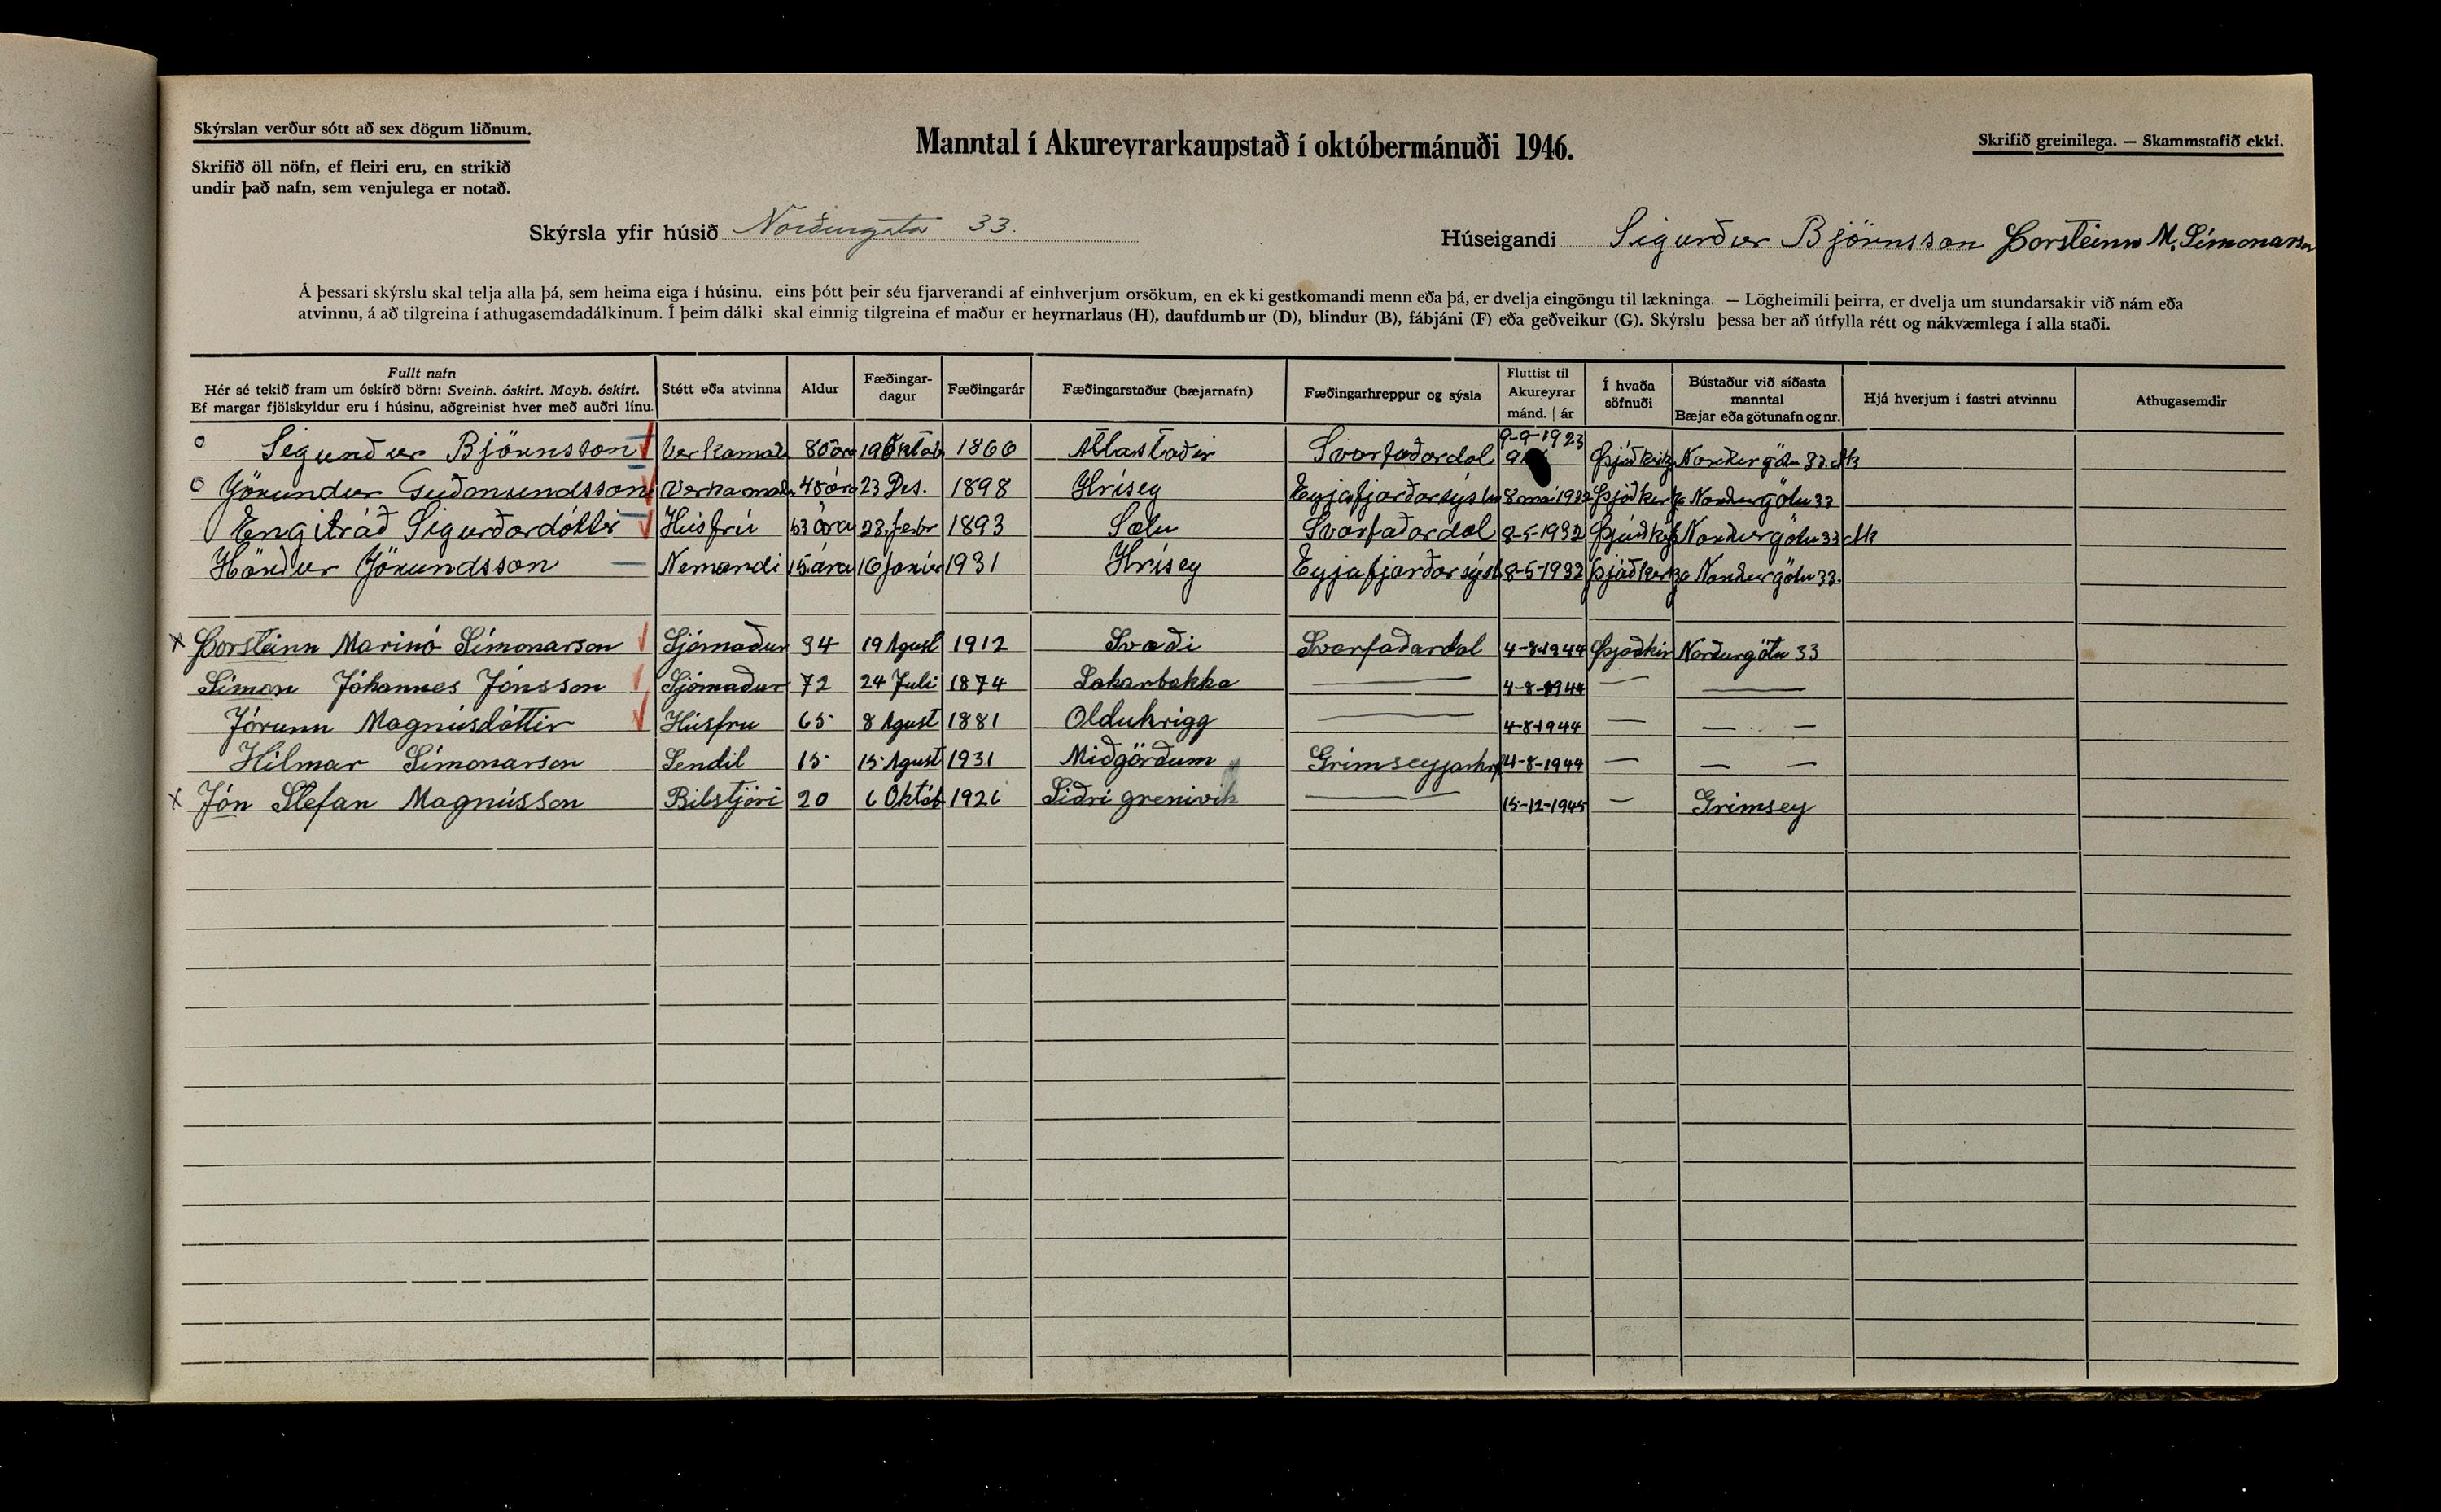 Skýrslan verður sótt að sex dögum liðnum.
Skrifið öll nöfn, ef fleiri eru, en strikið
undir það nafn, sem venjulega er notað.
Manntal í Akureyrarkaupstað í októbermánuði 1946.
Skrifið greinilega. — Skammstafið ekki.
Skýrsla yfir húsið Norðurgata 33.
Húseigandi Sigurður Björnsson Þorsteinn M. Símonarson
Á þessari skýrslu skal telja alla þá, sem heima eiga í húsinu, eins þótt þeir séu fjarverandi af einhverjum orsökum, en ekki gestkomandi menn eða þá, er dvelja eingöngu til lækninga. — Lögheimili þeirra, er dvelja um stundarsakir við nám eða
atvinnu, á að tilgreina í athugasemdadálkinum. Í þeim dálki skal einnig tilgreina ef maður er heyrnarlaus (H), daufdumbur (D), blindur (B), fábjáni (F) eða geðveikur (G). Skýrslu þessa ber að útfylla rétt og nákvæmlega í alla staði.
Fullt nafn Hér sé tekið fram um óskírð börn: Sveinb. óskírt. Meyb. óskírt. Ef margar fjölskyldur eru í húsinu, aðgreinist hver með auðri línu. Stétt eða atvinna Aldur Fæðingar-dagur Fæðingarár Fæðingarstaður (bæjarnafn) Fæðingarhreppur og sýsla Fluttist til Akureyrar mánd. | ár Í hvaða söfnuði Bústaður við síðasta manntal Bæjar eða götunafn og nr. Hjá hverjum í fastri atvinnu Athugasemdir
o Sigurður Björnsson Verkamað 80 ára 19 Oktob 1866 Atlastaðir Svarfaðardal 9-9-1923 Þjóðkirk Norðurgötu 33. Ak
o Jörundur Guðmundsson Verkamað 48 ára 23 Des. 1898 Hrísey Eyjafjarðarsýslu 8 mai 1932 Þjóðkirkja Norðurgötu 33
Engilráð Sigurðardóttir Húsfrú 53 ára 28. febr 1893 Sælu Svarfaðardal 8-5-1932 Þjóðkirk Norðurgötu 33 Ak
Hörður Jörundsson Nemandi 15 ára 16 janúar 1931 Hrísey Eyjafjarðarsýsl 8-5-1932 Þjóðkirkja Norðurgötu 33.
x Þorsteinn Marinó Símonarson Sjómaður 34 19 Agust 1912 Svæði Svarfaðardal 4-8-1944 Þjoðkir Norðurgötu 33
Símon Jóhannes Jónsson Sjómaður 72 24 Juli 1874 Sakarbakka — 4-8-1944 — —
Jórunn Magnúsdóttir Húsfru 65 8 Agust 1881 Olduhrigg — 4-8-1944 — — —
Hilmar Símonarson Sendil 15 15 Agust 1931 Miðgörðum Grimseyjarhr 4-8-1944 — — —
x Jón Stefan Magnússon Bilstjóri 20 6 Októb 1926 Siðri grenivik — 15-12-1945 — Grimsey